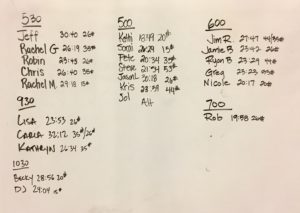 530
Jeff 30:40 26#
Rachel G 26:19 35#
Robin 23:43 26#
Chris 26:40 35#
Rachel M. 29:18 15#
930
LISA 23:53 26#
CARLA 32:12 35#/26#
KATHRYN 26:34 35#
1030
Becky 28:56 20#
DJ 29:04 15#
500
Kathi 18:49 20#
Sorai 15#
Pete 20:34 35#
Steve 21:54 53#
JasonL 20:18 26#
Kris 23:59 44#
Sol A++
600
Jim R. 27:47 44/35#
Jamie B 23:42 26#
Ryan B 23:29 44#
Greg 23:23 53#
Nicole 20:17 20#
700
Rob 19:58 26#